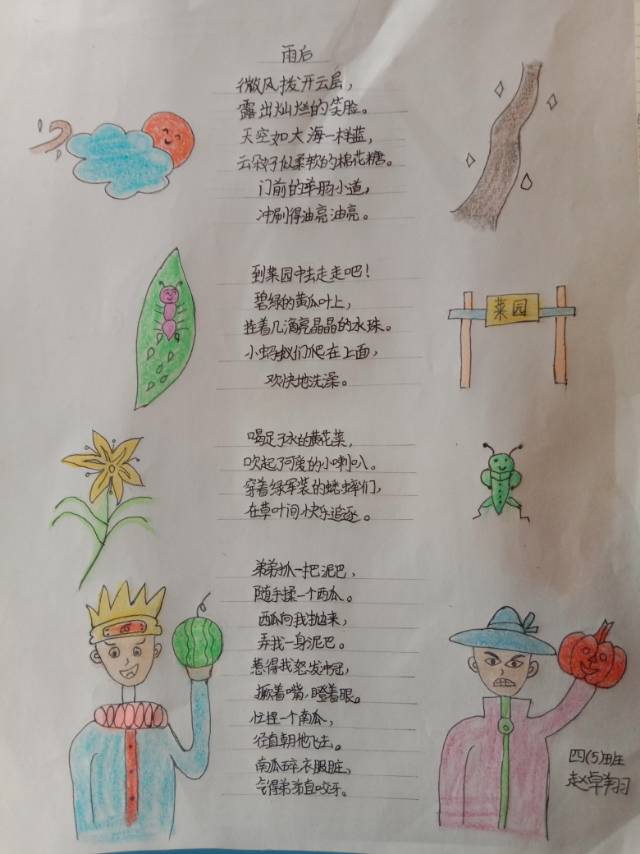 雨后
微风拨开云层，
露出灿烂的笑脸。
天空如大海一样蓝，
云朵好似柔软的棉花糖。
门前的羊肠小道，
冲刷得油亮油亮。
到菜园中去走走吧！
碧绿的黄瓜叶上，
挂着几滴亮晶晶的水珠。
小蚂蚁们爬在上面，
欢快地洗澡。
菜园
喝足了水的黄花菜，
吹起了可爱的小喇叭。
穿着绿军装的蟋蟀们，
在草叶间快乐追逐。
弟弟抓一把泥巴，
随手揉一个西瓜。
西瓜向我抛来，
弄我一身泥巴。
惹得我怒发冲冠，
撅着嘴，瞪着眼。
忙捏一个南瓜，
径直朝他飞去。
南瓜碎衣服脏，
气得弟弟直咬牙。
四(5)班
赵卓翔